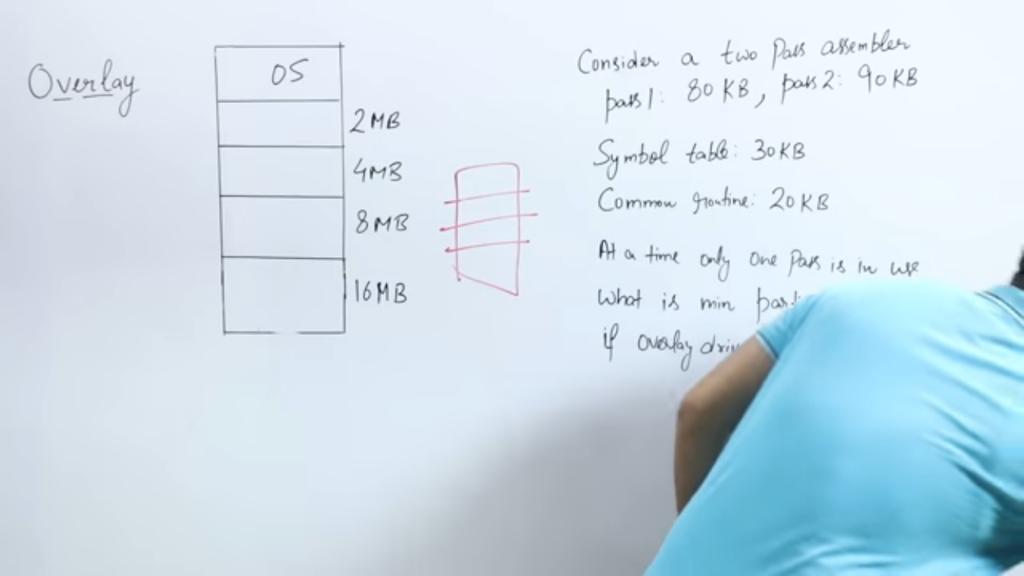 Overlay
OS
2MB
4MB
8MB
16MB
Consider a two Pass assembler
pass1: 80KB, pass2: 90KB
Symbol table: 30KB
Common routine: 20KB
At a time only one Pass is in use
What is min
if overlay